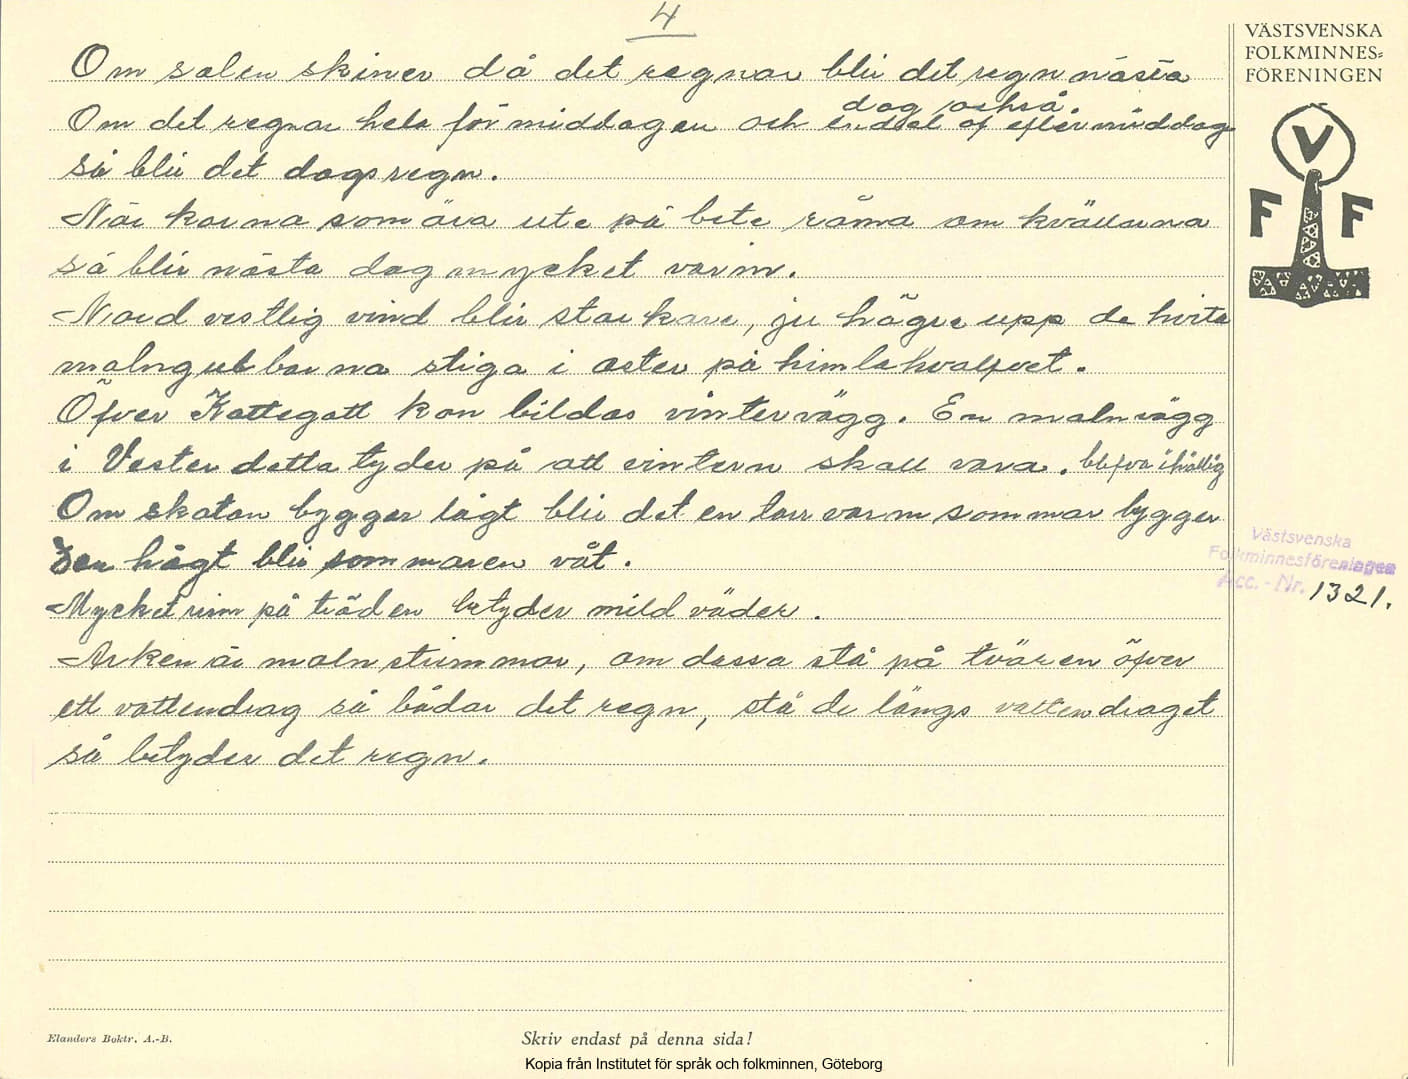 4
Om solen skiner då det regnar blir det regn nästa
dag också.
Om det regnar hela förmiddagen och endel af eftermiddag
så blir det dagsregn.
När korna som ära ute på bete råma om kvällarna
så blir nästa dag mycket varm.
Nordvestlig vind blir starkare, ju högre upp de hvita
molngubbarna stiga i öster på himlahvalfvet.
Öfver Kattegatt kan bildas vintervägg. En molnvägg
i Vester detta tyder på att vintern skall vara. blifva ihållig
Om skatan bygger lågt blir det en torr varm sommar bygger
den högt blir sommaren våt.
Mycket rim på träden betyder mild väder.
Arken är molnstrimmor, om dessa stå på tvären öfver
ett vattendrag så bådar det regn, stå de längs vattendraget
så betyder det regn.
VÄSTSVENSKA
FOLKMINNES=
FÖRENINGEN
V
F F
Västsvenska
Folkminnesföreningen
Acc. - Nr. 1321.
Elanders Boktr. A.-B.
Skriv endast på denna sida!
Kopia från Institutet för språk och folkminnen, Göteborg